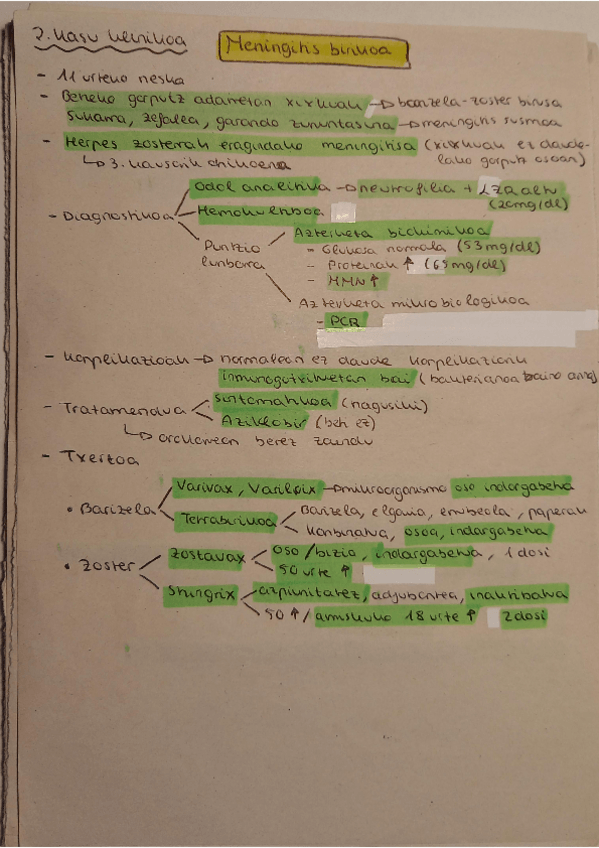 2. kasu klinikoa
Meningitis birikoa
- 11 urteko neska
- Beheko gorputz adarretan xixkuak → barizela-zoster birusa
sukarra, zefalea, garondo zurruntasuna → meningitis susmoa
- Herpes zosterrak eragindako meningitisa (xixkuak ez daude-
lako gorputz osoan)
↳ 3. kausarik ohikoena
- Diagnostikoa
Odol analitika → neutrofilia +
(20mg/dl)
Hemokultiboa
Puntzio lunbarra
Azterketa biokimikoa
- Glukosa normala (53 mg/dl)
- Proteinak ↑ (65mg/dl)
- MMN ↑
Azterketa mikrobiologikoa
- PCR
- Konplikazioak → normalean ez daude konplikaziorik
inmunogutxituetan bai (bakterianoa baino
- Tratamendua
Sintomatikoa (nagusiki)
Aziklobir (beti ez)
↳ orokorrean berez sendu
- Txertoa
• Barizela
Varivax, Varilrix → mikroorganismo oso indargabetua
Tetrabirikoa
Barizela, elgorria, errubeola, paperak
Konbinatua, osoa, indargabetua
• Zoster
Zostavax
oso/bizia, indargabetua, 1 dosi
50 urte ↑
Shingrix
azpiunitatez, adjubantea, inaktibatua
50 ↑ / arriskuko 18 urte ↑ 2 dosi